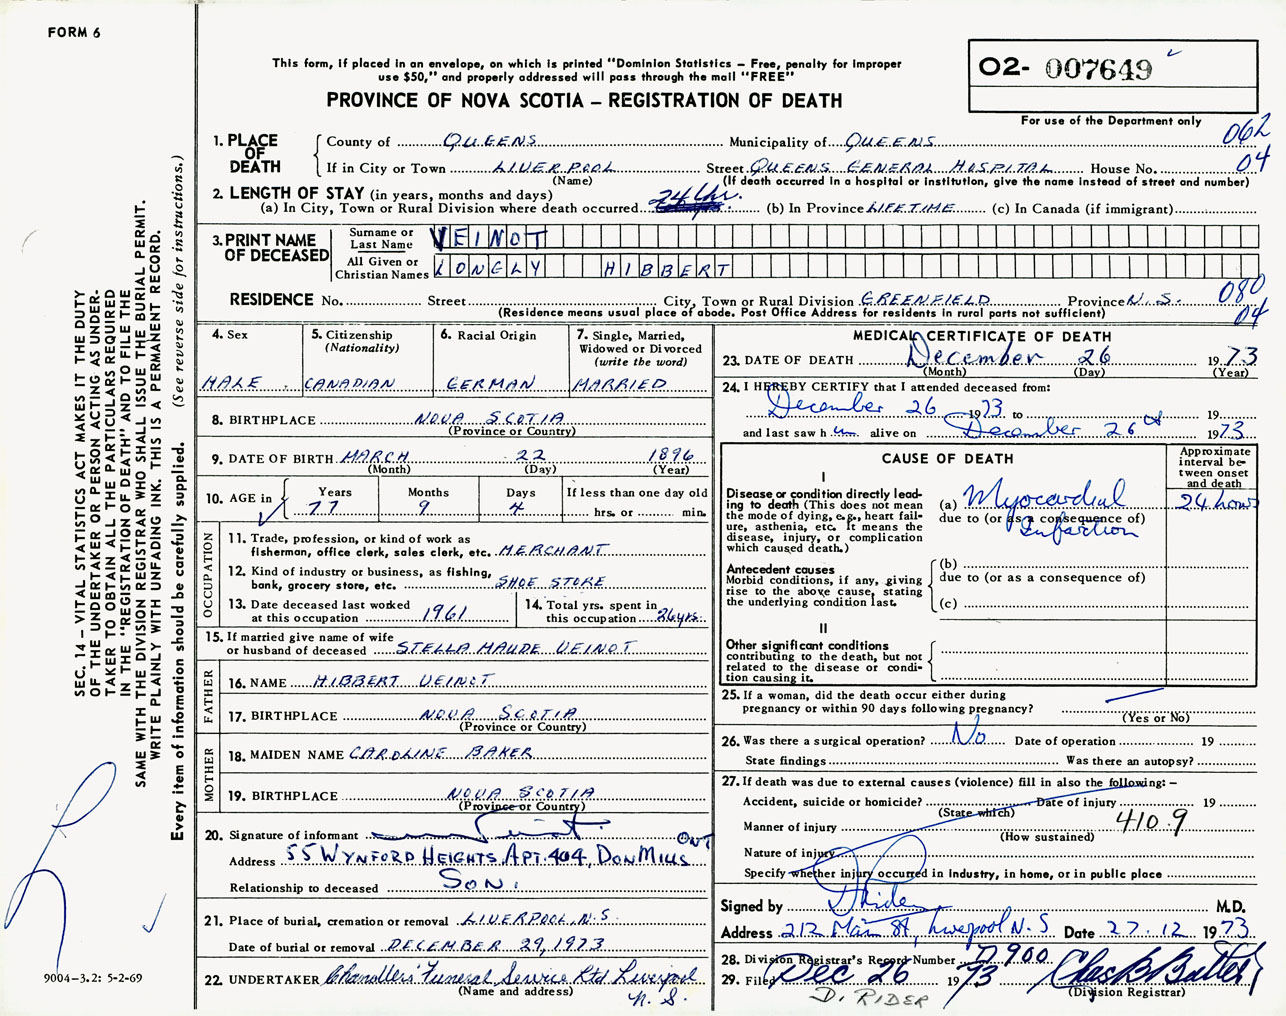 FORM 6
This form, if placed in an envelope, on which is printed "Dominion Statistics – Free, penalty for improper
use $50," and properly addressed will pass through the mail "FREE"
PROVINCE OF NOVA SCOTIA – REGISTRATION OF DEATH
02- 007649
For use of the Department only
062
04
1. PLACE OF DEATH
County of QUEENS Municipality of QUEENS
If in City or Town LIVERPOOL Street QUEENS GENERAL HOSPITAL House No.
(Name) (If death occurred in a hospital or institution, give the name instead of street and number)
2. LENGTH OF STAY (in years, months and days)
(a) In City, Town or Rural Division where death occurred 24 hr. (b) In Province LIFETIME (c) In Canada (if immigrant)
3. PRINT NAME OF DECEASED
Surname or Last Name VEINOT
All Given or Christian Names LONGLY HIBBERT
RESIDENCE No. Street City, Town or Rural Division GREENFIELD Province N.S.
(Residence means usual place of abode. Post Office Address for residents in rural parts not sufficient)
080
04
4. Sex
MALE
5. Citizenship
(Nationality)
CANADIAN
6. Racial Origin
GERMAN
7. Single, Married,
Widowed or Divorced
(write the word)
MARRIED
8. BIRTHPLACE NOVA SCOTIA
(Province or Country)
9. DATE OF BIRTH MARCH 22 1896
(Month) (Day) (Year)
10. AGE in Years Months Days If less than one day old
77 9 4 hrs. or min.
OCCUPATION
11. Trade, profession, or kind of work as
fisherman, office clerk, sales clerk, etc. MERCHANT
12. Kind of industry or business, as fishing,
bank, grocery store, etc. SHOE STORE
13. Date deceased last worked
at this occupation 1961
14. Total yrs. spent in
this occupation 26 yrs.
15. If married give name of wife
or husband of deceased STELLA MAUDE VEINOT
FATHER
16. NAME HIBBERT VEINOT
17. BIRTHPLACE NOVA SCOTIA
(Province or Country)
MOTHER
18. MAIDEN NAME CAROLINE BAKER
19. BIRTHPLACE NOVA SCOTIA
(Province or Country)
20. Signature of informant Veinot
ONT
Address 55 WYNFORD HEIGHTS, APT. 404, DON MILLS
Relationship to deceased SON.
21. Place of burial, cremation or removal LIVERPOOL N.S.
Date of burial or removal DECEMBER 29, 1973
22. UNDERTAKER Chandlers' Funeral Service Ltd Liverpool
(Name and address) N. S.
MEDICAL CERTIFICATE OF DEATH
23. DATE OF DEATH December 26 1973
(Month) (Day) (Year)
24. I HEREBY CERTIFY that I attended deceased from:
December 26 1973 to 19
and last saw h im alive on December 26th 1973
CAUSE OF DEATH
Approximate
interval be-
tween onset
and death
I
Disease or condition directly lead-
ing to death (This does not mean
the mode of dying, e.g., heart fail-
ure, asthenia, etc. It means the
disease, injury, or complication
which caused death.)
(a) Myocardial 24 hours
due to (or as a consequence of)
Infarction
Antecedent causes
Morbid conditions, if any, giving
rise to the above cause, stating
the underlying condition last.
(b)
due to (or as a consequence of)
(c)
II
Other significant conditions
contributing to the death, but not
related to the disease or condi-
tion causing it.
25. If a woman, did the death occur either during
pregnancy or within 90 days following pregnancy?
(Yes or No)
26. Was there a surgical operation? No Date of operation 19
State findings Was there an autopsy?
27. If death was due to external causes (violence) fill in also the following: –
Accident, suicide or homicide? Date of injury 19
(State which)
Manner of injury 410.9
(How sustained)
Nature of injury
Specify whether injury occurred in industry, in home, or in public place
Signed by D Rider M.D.
Address 212 Main St, Liverpool N.S Date 27.12 1973
28. Division Registrar's Record Number 7900
29. Filed Dec 26 1973 Chas B Butler
D. RIDER (Division Registrar)
SEC. 14 – VITAL STATISTICS ACT MAKES IT THE DUTY
OF THE UNDERTAKER OR PERSON ACTING AS UNDER-
TAKER TO OBTAIN ALL THE PARTICULARS REQUIRED
IN THE "REGISTRATION OF DEATH" AND TO FILE THE
SAME WITH THE DIVISION REGISTRAR WHO SHALL ISSUE THE BURIAL PERMIT.
WRITE PLAINLY WITH UNFADING INK. THIS IS A PERMANENT RECORD.
Every item of information should be carefully supplied. (See reverse side for instructions.)
9004–3.2: 5-2-69